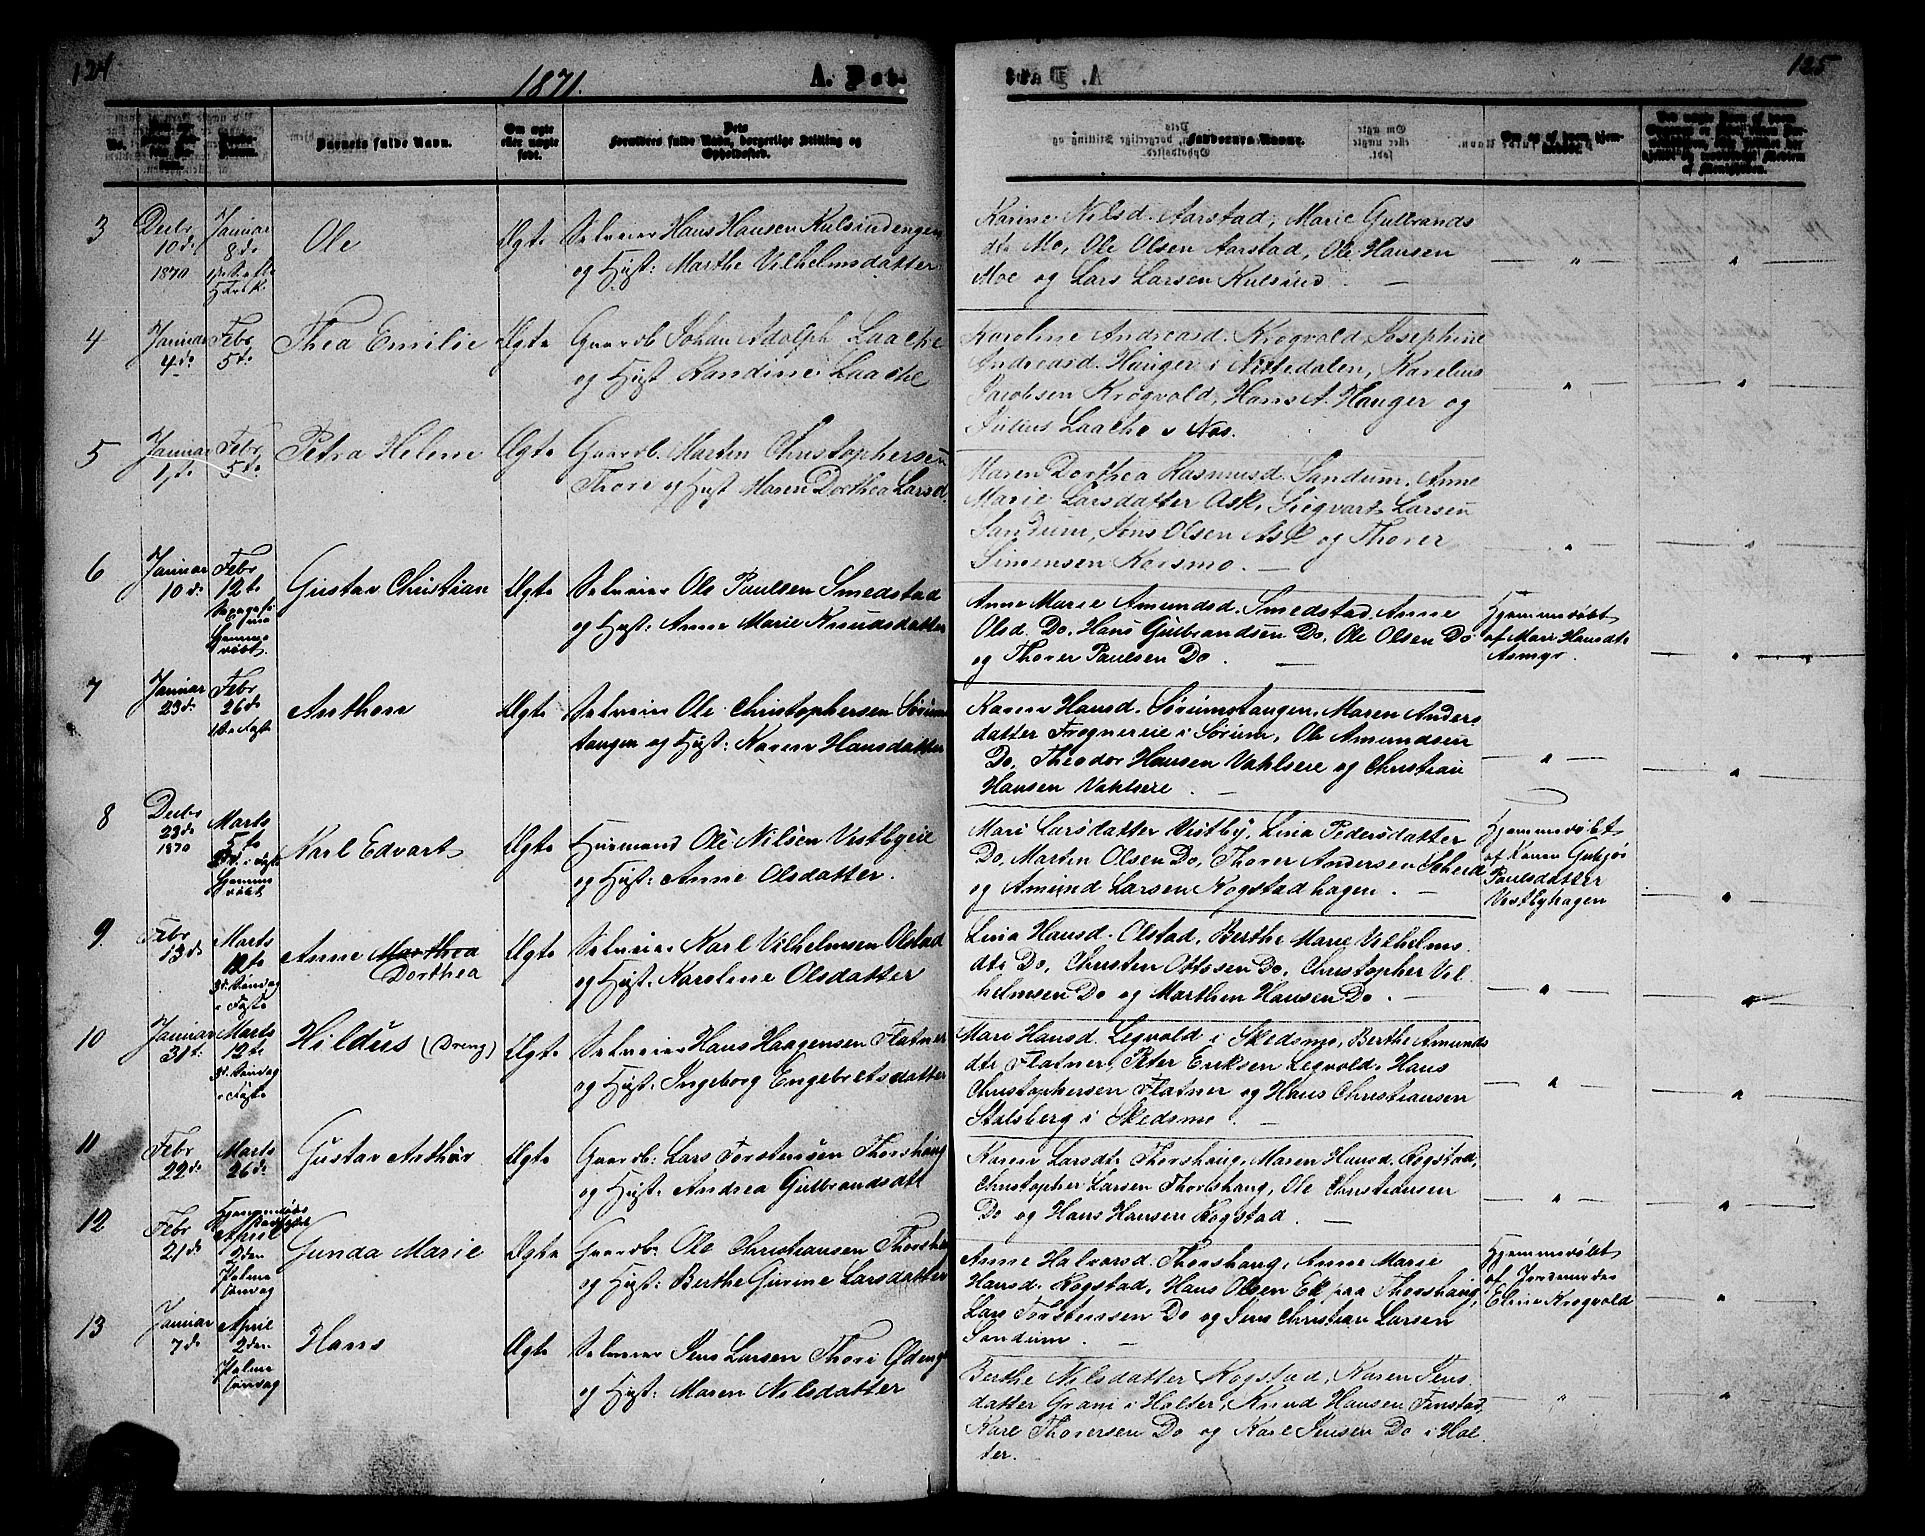 124
1871.
A. Døb
No.
Barnets fulde Navn.
Om ægte eller uægte født.
Forældres fulde Navn, borgerlige Stilling og Opholdssted.
3 Decbr 10de 1870 Januar 8de Ole Ægte Selveier Hans Hansen Kulsindengen
og Hust: Marthe Vilhelmsdatter
4 Januar 4de Febr 5te Thea Emilie Ægte Gaardb. Johan Adolph Laache
og Hust Randine Laache
5 Januar 1ste Febr 5te Petra Helene Ægte Gaardb. Martin Christophersen
Thori og Hust Maren Dorthea Larsd.
6 Januar 10de Febr 12te Gustav Christian Ægte Selveier Ole Paulsen Smedstad
Hjemmedøbt. og Hust: Anne Marie Knudsdatter
7 Januar 23de Febr 26de Anthon Ægte Selveier Ole Christophersen Sørum
tangen og Hust: Karen Hansdatter
8 Decbr 23de 1870 Marts 5te Karl Edvart Ægte Huusmand Ole Nilsen Vestbyeie
Hjemmedøbt og Hust: Anne Olsdatter.
9. Febr 13de Marts 12te Anne Marthea Ægte Selveier Karl Vilhelmsen Olstad
3die Søndag i Faste Dorthea og Hust: Karoline Olsdatter
10 Januar 31te Marts 12te Hildus (Dreng) Ægte Selveier Hans Haagensen Flatner
3die Søndag i Faste og Hust: Ingeborg Engebretsdatter
11 Febr 22de Marts 26de Gustav Arthur Ægte Gaardb: Lars Torstensen Thorshaug
og Hust: Andrea Gulbrandsdt
12 Febr 21de April 2den Gunda Marie Ægte Gaardb: Ole Christiansen Thorsha
Palme søndag og Hust: Berthe Gurine Larsdatter
13 Januar 7de April 2den Hans Ægte Selveier Jens Larsen Thori Ødeng
Palme søndag og Hust: Maren Nilsdatter
125
A. Døb
Faddernes Navne.
Om og af hvem hjemmedøbt.
Karine Nilsd. Aarstad, Marie Gulbrands
dtr Mo, Ole Olsen Aarstad, Ole Hansen
Moe og Lars Larsen Kulsind. —
Karoline Andreasd. Krogvold, Josephine
Andreasd. Hauger i Nittedalen, Karelius
Jacobsen Krogvold, Hans A. Hauger og
Julius Laache i Næs.
Maren Dorthea Rasmusd. Sandum, Anne
Marie Larsdatter Ask, Siegvart Larsen
Sandum, Jens Olsen Ask og Thorer
Simensen Korsmo. —
Anne Marie Amundsd. Smedstad, Anne Hjemmedøbt
Olsd. Do, Hans Gulbrandsen Do, Ole Olsen Do af Mari Hansdtr
og Thorer Paulsen Do. — Asmyr.
Karen Hansd. Sørumstangen, Maren Anders
datter Frognereie i Sørum, Ole Amundsen
Do, Theodor Hansen Vahlseie og Christian
Hansen Vahlseie. —
Mari Larsdatter Vestby, Lina Pedersdatter Hjemmedøbt
Do, Marten Olsen Do, Thorer Andersen Scheid af Karen
og Amund Larsen Kogstadhagen. — Paulsdatter
Vestbyhagen
Lina Hansd. Olstad, Berthe Marie Vilhelms
dtr Do, Christen Ottesen Do, Christopher Vil
helmsen Do og Marthin Hansen Do. —
Mari Hansd. Legvold i Skedsmo, Berthe Amunds
dtr Flatner, Peter Eriksen Legvold, Hans
Christophersen Flatner og Hans Christiansen
Stalsberg i Skedsmo. —
Karen Larsdtr Thorshaug, Maren Hansd. Kogstad,
Christopher Larsen Thorshaug, Ole Christiansen
Do og Hans Hansen Kogstad. —
Anne Halvorsd. Thorshaug, Anne Marie Hjemmedøbt
Hansd. Kogstad, Hans Olsen Ek paa Thorshaug, af Jordemoder
Lars Torstensen Do og Jens Christian Larsen Eline Krogvold
Sandum. —
Berthe Nilsdatter Kogstad, Karen Jens
datter Grani i Holter, Knud Hansen Finstad,
Karl Thorersen Do og Karl Jensen Do i Hol
ter.